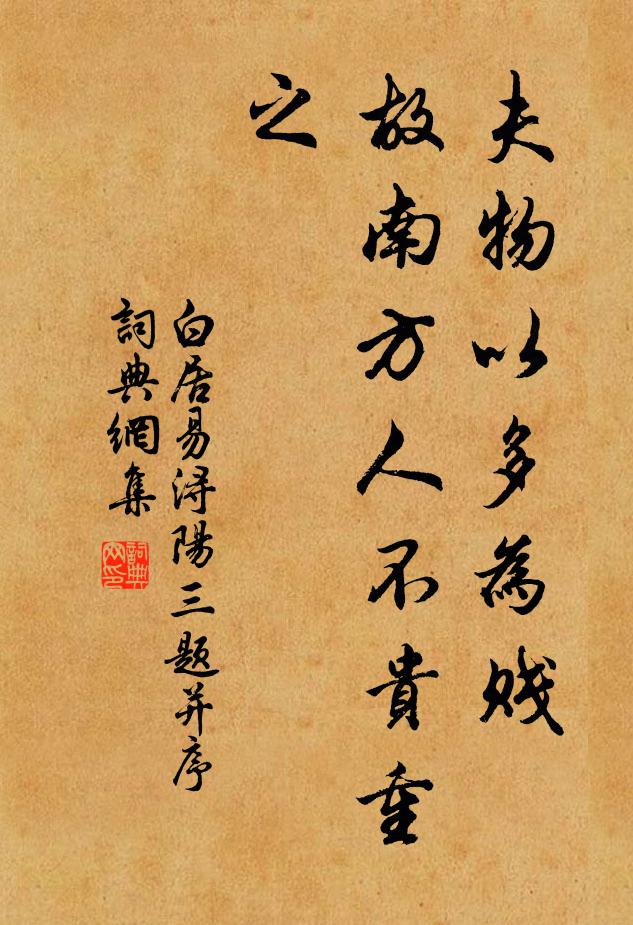 夫物以多為賤
故南方人不貴重
之
白居易潯陽三題并序
詞典網集
詞典
网印